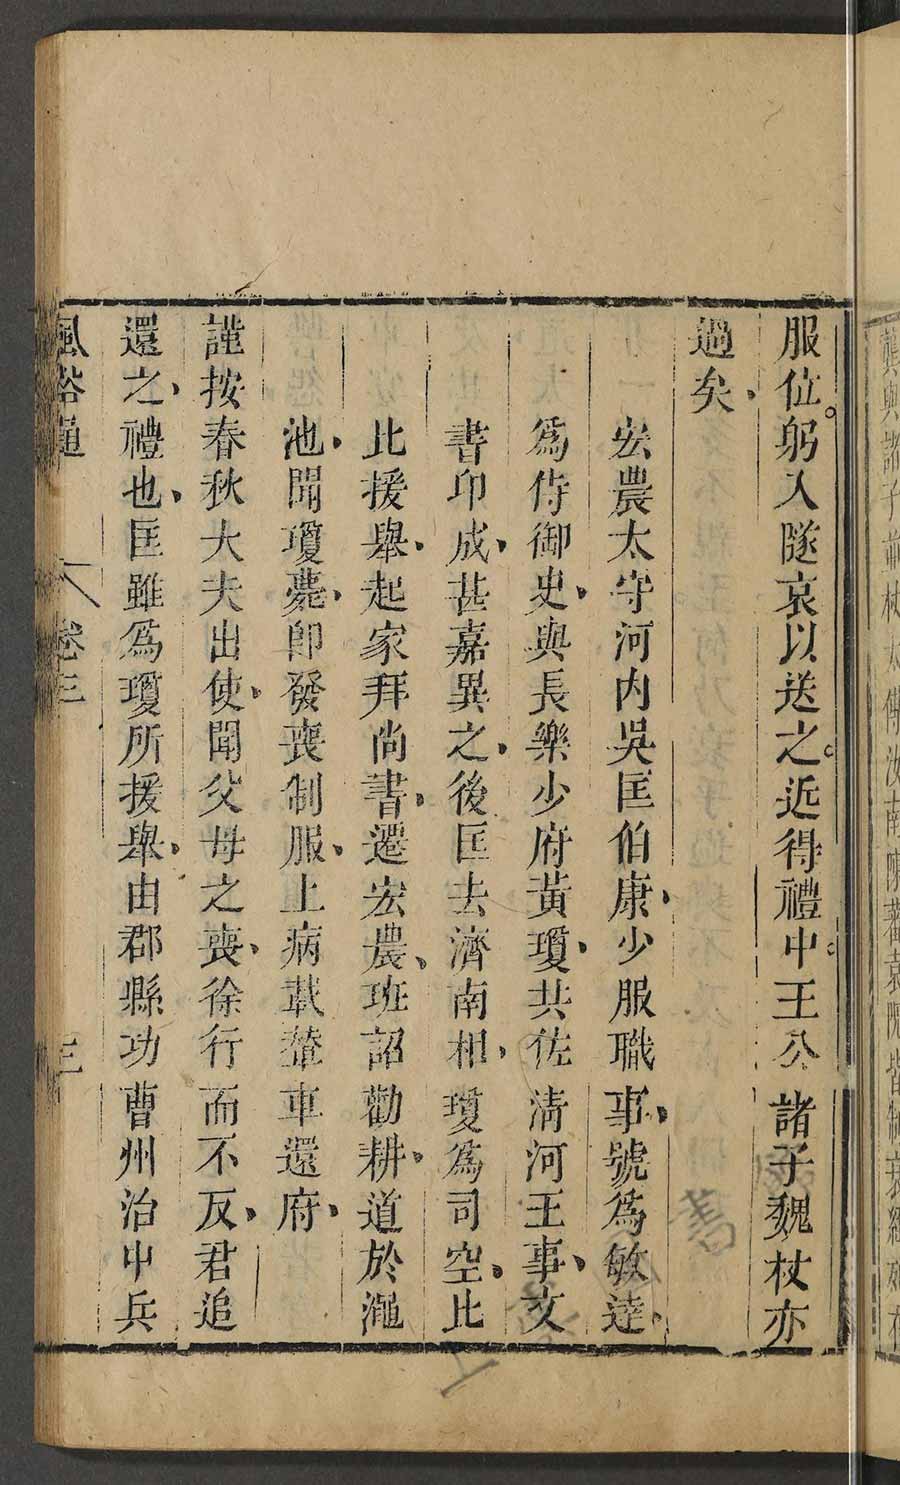 服位躬入隧哀以送之近得禮中王公諸子魏杖亦
過矣
宏農太守河内吳匡伯康少服職事號爲敏達
爲侍御史與長樂少府黃瓊共佐清河王事文
書印成甚嘉異之後匡去濟南相瓊爲司空比
比援舉起家拜尚書遷宏農班詔勸耕道於澠
池聞瓊薨卽發喪制服上病載輦車還府
謹按春秋大夫出使聞父母之喪徐行而不反君追
還之禮也匡雖爲瓊所援舉由郡縣功曹州治中兵
風俗通 卷三 三